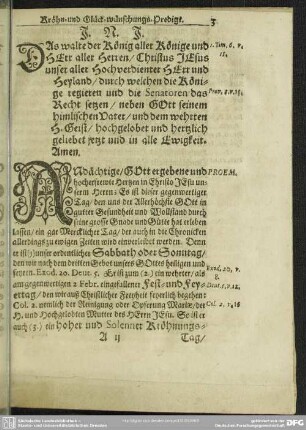 Kröhn-und Glück-wünschungs-Predigt. 3
J. N. J.
DAs walte der König aller Könige und
HErr aller Herren/ Christus JEsus
unser aller Hochverdienter HErr und
Heyland/ durch welchen die Köni-
ge regieren und die Senatoren das
Recht setzen/ neben GOtt seinem
himlischen Vater/ und dem wehrten
H. Geist/ hochgelobet und hertzlich
geliebet jetzt und in alle Ewigkeit.
Amen.
1. Tim. 6. v. 15.
Prov. 8. v. 15.
ANdächtige/ GOtt ergebene und
hocherfreute Hertzen in Christo JEsu un-
serm HErrn: Es ist dieser gegenwertiger
Tag/ den uns der Allerhöchste GOtt in
guter Gesundheit und Wollstand durch
seine grosse Gnade und Güte hat erleben
lassen/ ein gar Mercklicher Tag/ der auch in die Chronicken
allerdings zu ewigen Zeiten wird einverleibet werden. Denn
er ist (1) unser ordentlicher Sabbath oder Sonntag/
den wir nach dem dritten Gebot unsers GOttes heiligen und
feyern. Exod. 20. Deut. 5. Er ist zum (2.) ein wehrter/ als
am gegenwertigen 2 Febr. eingefallener Fest- und Fey-
ertag/ den wir auß Christlicher Freyheit feyerlich begehen
Col. 2. nemlich der Reinigung oder Opferung Mariæ/ der
H. und Hochgelobten Mutter des HErrn JEsu. So ist er
auch (3.) ein hoher und Solenner Kröhnungs-
PROEM.
Exod. 20. v. 8.
Deut. 5. v. 12.
Col. 2. v. 16
A ij Tag/